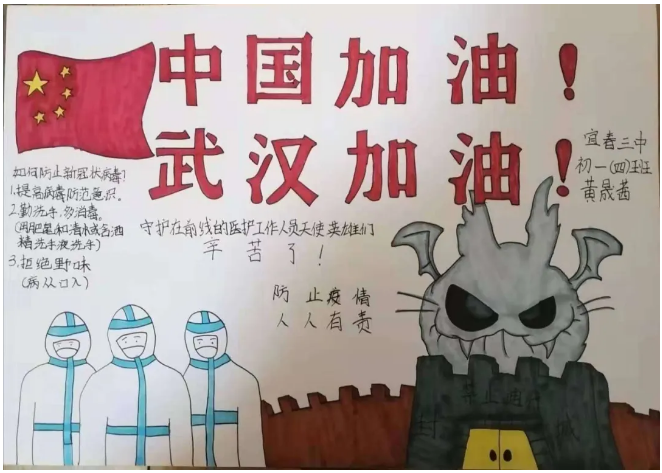 中国加油！
武汉加油！
宜春三中
初一(四)班
黄晟茜
如何防止新冠状病毒?
1.提高病毒防范意识。
2.勤洗手,多消毒。
(用肥皂和清水或含酒
精洗手液洗手)
3.拒绝野味
(病从口入)
守护在前线的医护工作人员天使英雄们
辛苦了！
防止疫情
人人有责